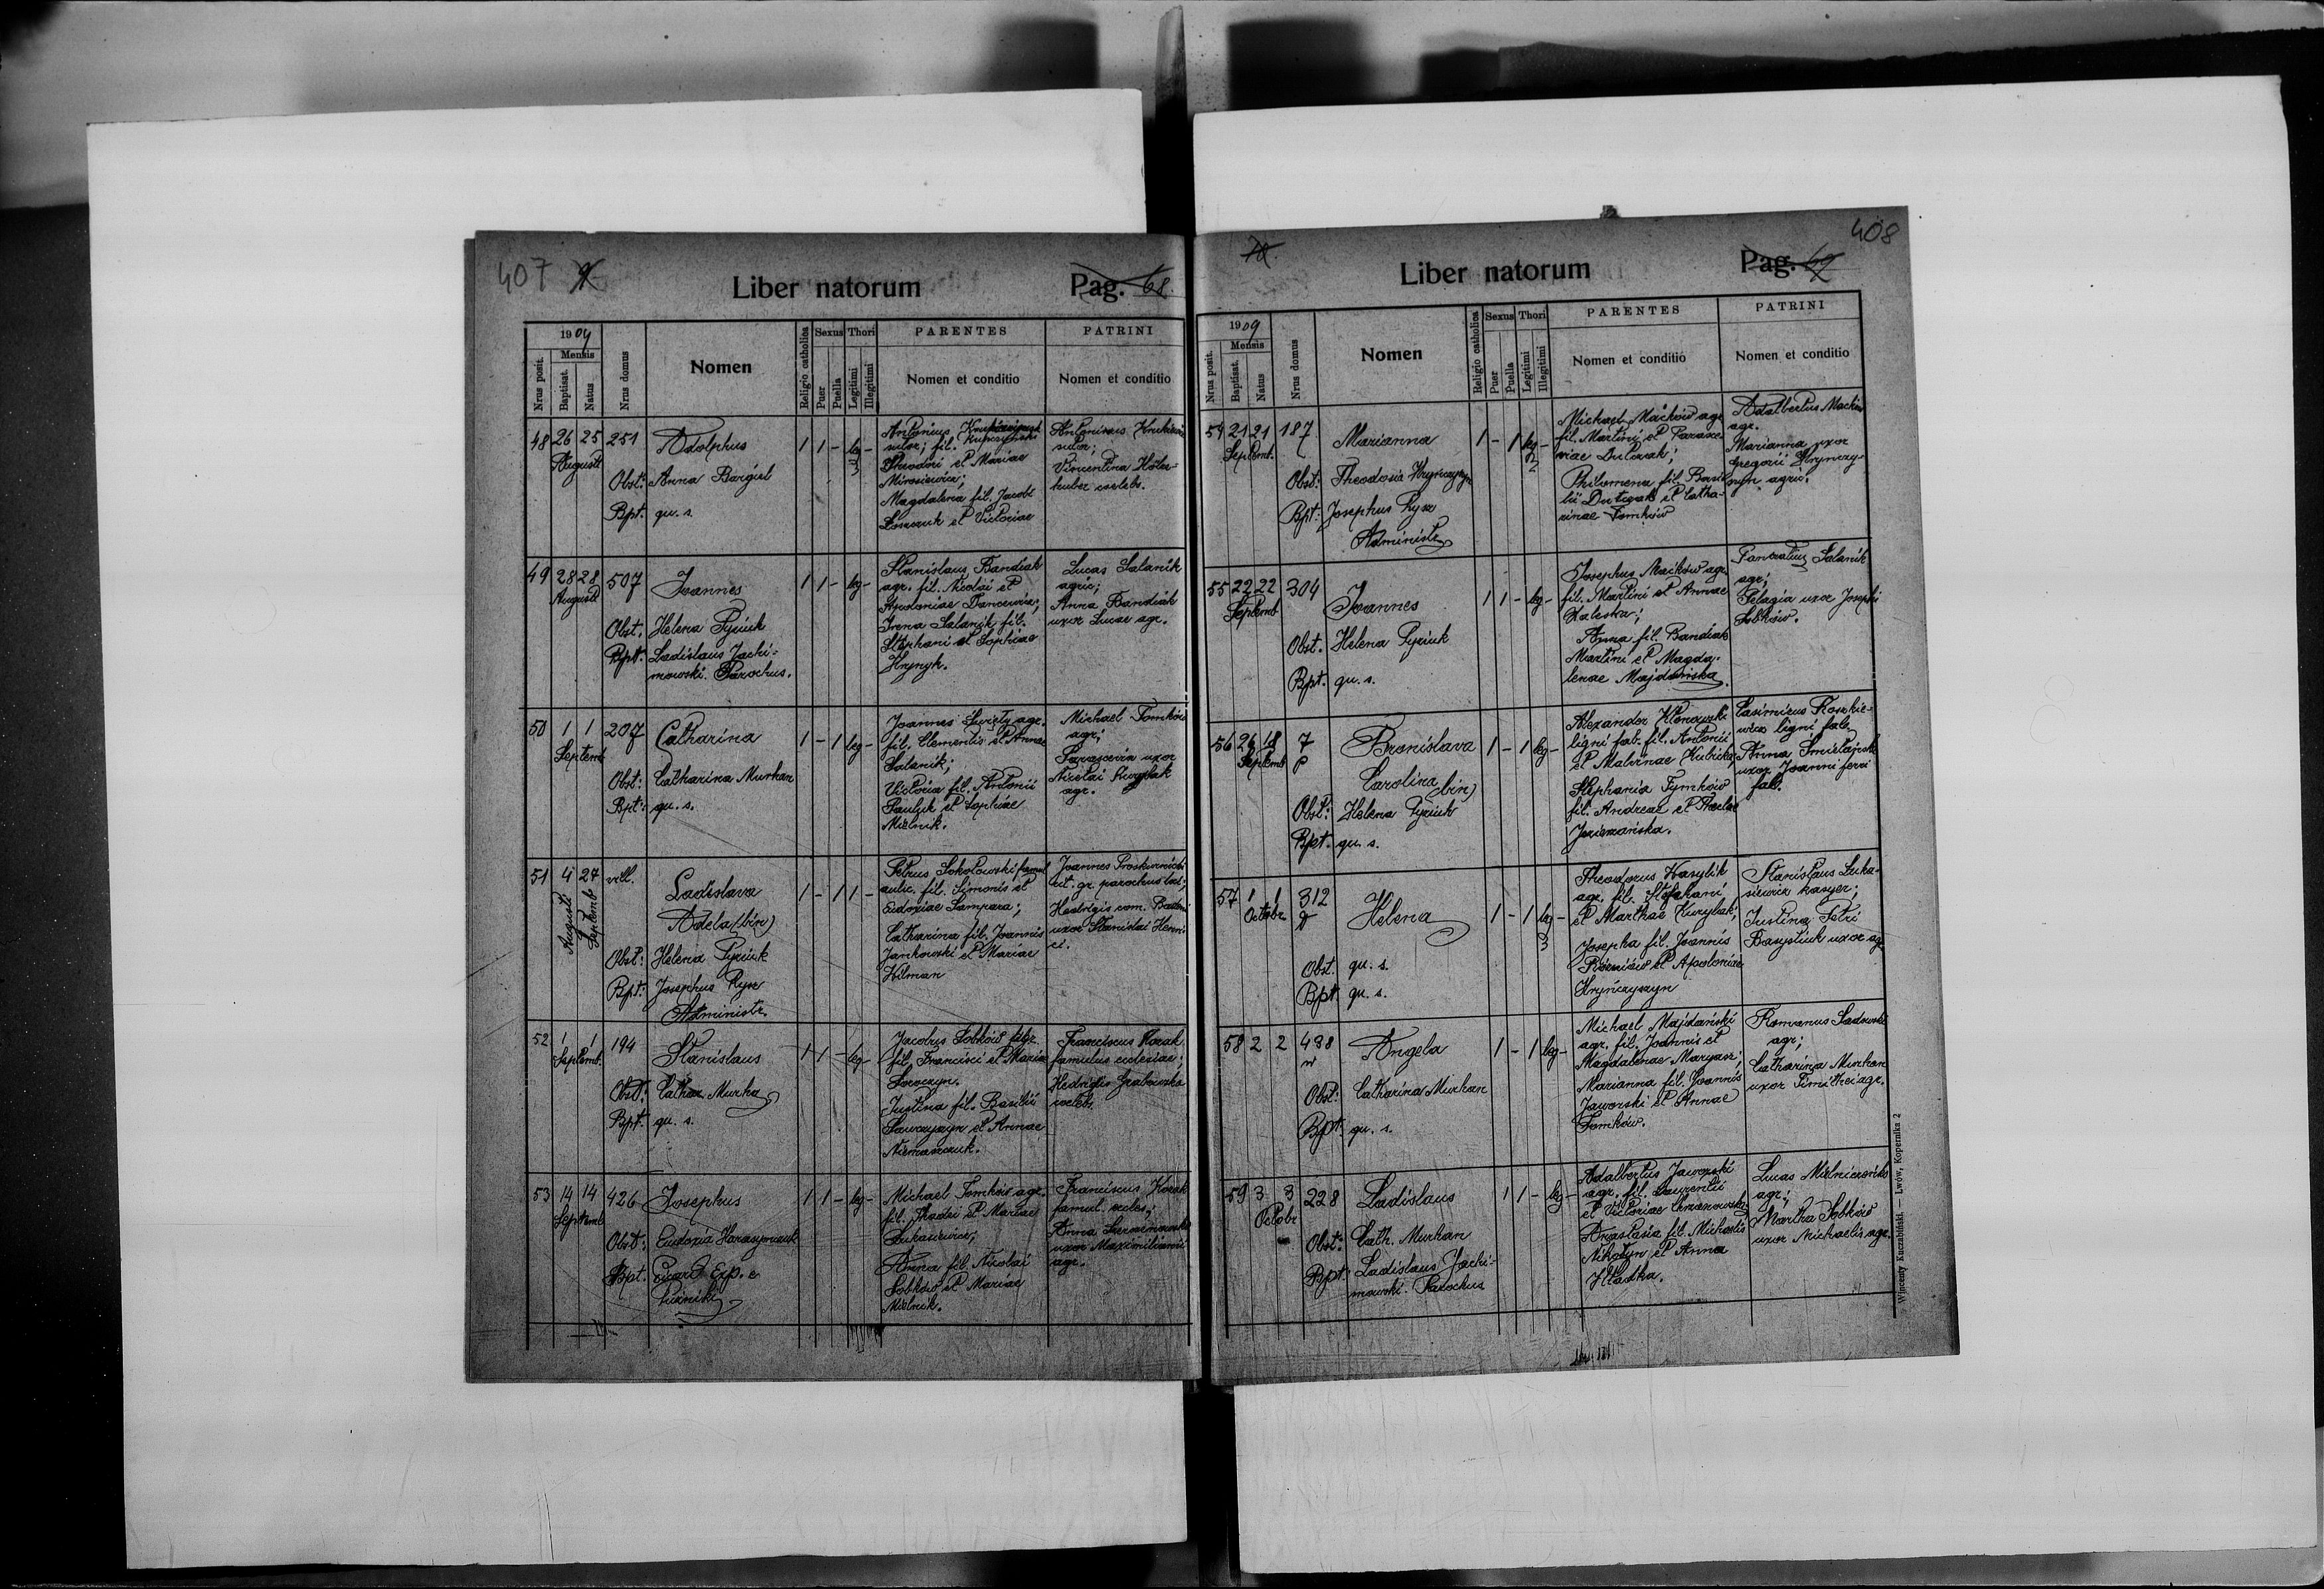 407
Liber natorum
Pag. 68
1909
Mensis
Nrus posit.
Baptisat.
Natus
Nrus domus
Nomen
Religio catholica
Sexus
Puer
Puella
Thori
Legitimi
Illegitimi
PARENTES
Nomen et conditio
PATRINI
Nomen et conditio
48 26 25 251
Augusti
Adolphus
Obst: Anna Bargiel
Bpt: qu. s.
1 1 - leg -
Antonius
sutor; fil.
Theodori et Mariae
Mirosiewicz;
Magdalena fil. Jacobi
et Victoriae
Antonius
sutor;
Vincentina
huber coelebs.
49 28 28 507
Augusti
Joannes
Obst. Helena Pyziuk
Bpt. Ladislaus Jachi-
mowski. Parochus.
1 1 - leg -
Stanislaus Bandiak
agr. fil. Nicolai et
Apoloniae
Irena Salanik fil.
Stephani et Sophiae
Hrynyk.
Lucas Salanik
agric;
Anna Bandiak
uxor Lucae agr.
50 1 1 207
Septemb
Catharina
Obst: Catharina Murhan
Bpt: qu. s.
1 - 1 leg -
Joannes Święty agr.
fil. Clementis et Annae
Salanik;
Victoria fil. Antonii
Pauluk et Sophiae
Mielnik.
Michael Tomków
agr;
Parascevia uxor
Nicolai
agr.
51 4 27 vill.
Augusti
Septemb
Ladislava
Adela (bin)
Obst: Helena Pyziuk
Bpt: Josephus Rysz
Administr.
1 - 1 1 -
Petrus Sokolowski famul
aulic. fil. Simonis et
Eudoxiae Sampara;
Catharina fil. Joannis
Jankowski et Mariae
Hilman
Joannes
rit. gr. parochus
Hedvigis com.
uxor Stanislai Henri
ci.
52 1 1 194
Septemb.
Stanislaus
Obst: Cathar. Murha
Bpt: qu. s.
1 1 - leg -
Jacobus Sobków
fil. Francisci et Mariae
Justina fil. Basilii
et Annae
Franciscus Kozak
famulus ecclesiae;
Hedvigis Grabowska
coelebs.
53 14 14 426
Septemb
Josephus
Obst: Eudoxia Harasymczuk
Bpt. Eduard Exp. e
1 1 - leg -
Michael Tomków agr.
fil. Thadei et Mariae
Łukasiewicz;
Anna fil. Nicolai
Sobków et Mariae
Mielnik.
Franciscus Kozak
famul. eccles;
Anna
uxor Maximiliani
agr.
408
Liber natorum
Pag. 69
1909
Mensis
Nrus posit.
Baptisat.
Natus
Nrus domus
Nomen
Religio catholica
Sexus
Puer
Puella
Thori
Legitimi
Illegitimi
PARENTES
Nomen et conditio
PATRINI
Nomen et conditio
54 21 21 187
Septemb.
Marianna
Obst: Theodosia Hryńczyszyn
Bpt: Josephus Rysz
Administr
1 - 1 leg -
Michael Maćków agr
fil. Martini et Parasce
viae Dutczak;
Philomena fil. Basi
lii Dutczak et Catha-
rinae Tomków
Adalbertus Maćków
agr.
Marianna uxor
Gregorii Hryńczy-
szyn agric.
55 22 22 304
Septemb
Joannes
Obst. Helena Pyziuk
Bpt. qu. s.
1 1 - leg -
Josephus Maćków agr.
fil. Martini et Annae
Zaleska;
Anna fil. Bandiak
Martini et Magda-
lenae Majdańska.
Pancratius Salanik
agr;
Pelagia uxor Josephi
Sobków.
56 26 18 7
Septemb
Bronislava
Carolina (bin)
Obst: Helena Pyziuk
Bpt. qu. s.
1 - 1 leg -
Alexander Klonowski
ligni fab. fil. Antonii
et Malvinae Kubicka;
Stephania Tymków
fil. Andreae et Theclae
Jezierzańska.
Casimirus Roszkie-
wicz ligni fab.
Anna
uxor Joanni ferri
fab.
57 1 1 312
Octobr
Helena
Obst. qu. s.
Bpt. qu. s.
1 - 1 leg -
Theodorus Wasylik
agr. fil. Stefani
et Marthae Kurylak;
Josepha fil. Joannis
et Apoloniae
Hryńczyszyn
Stanislaus Łuka-
siewicz kasyer;
Justina Petri
Basystiuk uxor agr
58 2 2 438
Angela
Obst: Catharina Murhan
Bpt. qu. s.
1 - 1 leg -
Michael Majdański
agr. fil. Joannis et
Magdalenae Maryasz;
Marianna fil. Joannis
Jaworski et Annae
Tomków.
Romanus Sadowski
agr;
Catharina Murhan
uxor Timothei agr.
59 3 3 228
Octobr
Ladislaus
Obst: Cath. Murhan
Bpt: Ladislaus Jachi-
mowski. Parochus
1 1 - leg -
Adalbertus Jaworski
agr. fil. Laurentii
et Victoriae Chrzanowska
Anastasia fil. Michaelis
et Anna
Hladka.
Lucas
agr;
Martha Sobków
uxor Michaelis agr.
Wincenty Kuczabiński. — Lwów, Kopernika 2